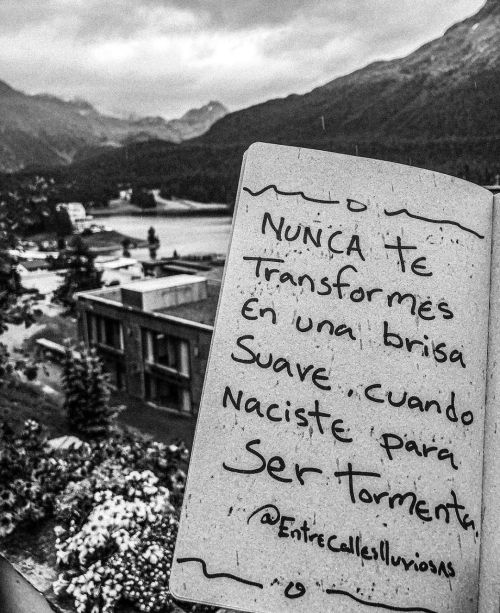 NUNCA te
Transformes
En una brisa
Suave, cuando
Naciste para
Ser Tormenta.
@Entrecalleslluviosas